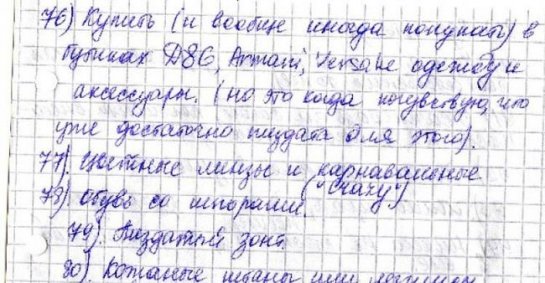 76) Купить (и вообще иногда покупать) в
бутиках D&G, Armani, Versace одежду и
аксессуары. (но это когда почувствую, что
уже достаточно пиздата для этого).
77). Цветные линзы и карнавальные ("Crazy")
78). Обувь со шпорами.
79). Пиздатый зонт.
80). Кожаные штаны или